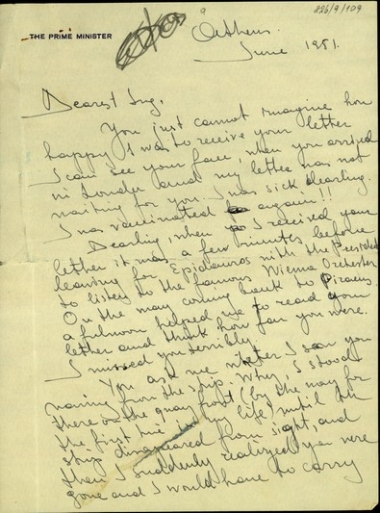 THE PRIME MINISTER
Athens.
June 1951.
Dearest
You just cannot imagine how
happy I was to receive your letter
I can see your face, when you arrived
in London and my letter was not
waiting for you. I was sick darling.
I was vaccinated again!!
Darling, when I received your
letter it was a few minutes before
leaving for Epidauros with the President
to listen to the famous Vienna Orchester
On the way coming back to Piraeus
a fulmoon helped me to read your
letter and think how far you were.
I missed you terribly.
You ask me whether I saw you
waving from the ship. Why, I stood
there on the quay front (by the way for
the first time in my life) until the
ship disappeared from sight, and
than I suddenly realized you were
gone and I would have to carry